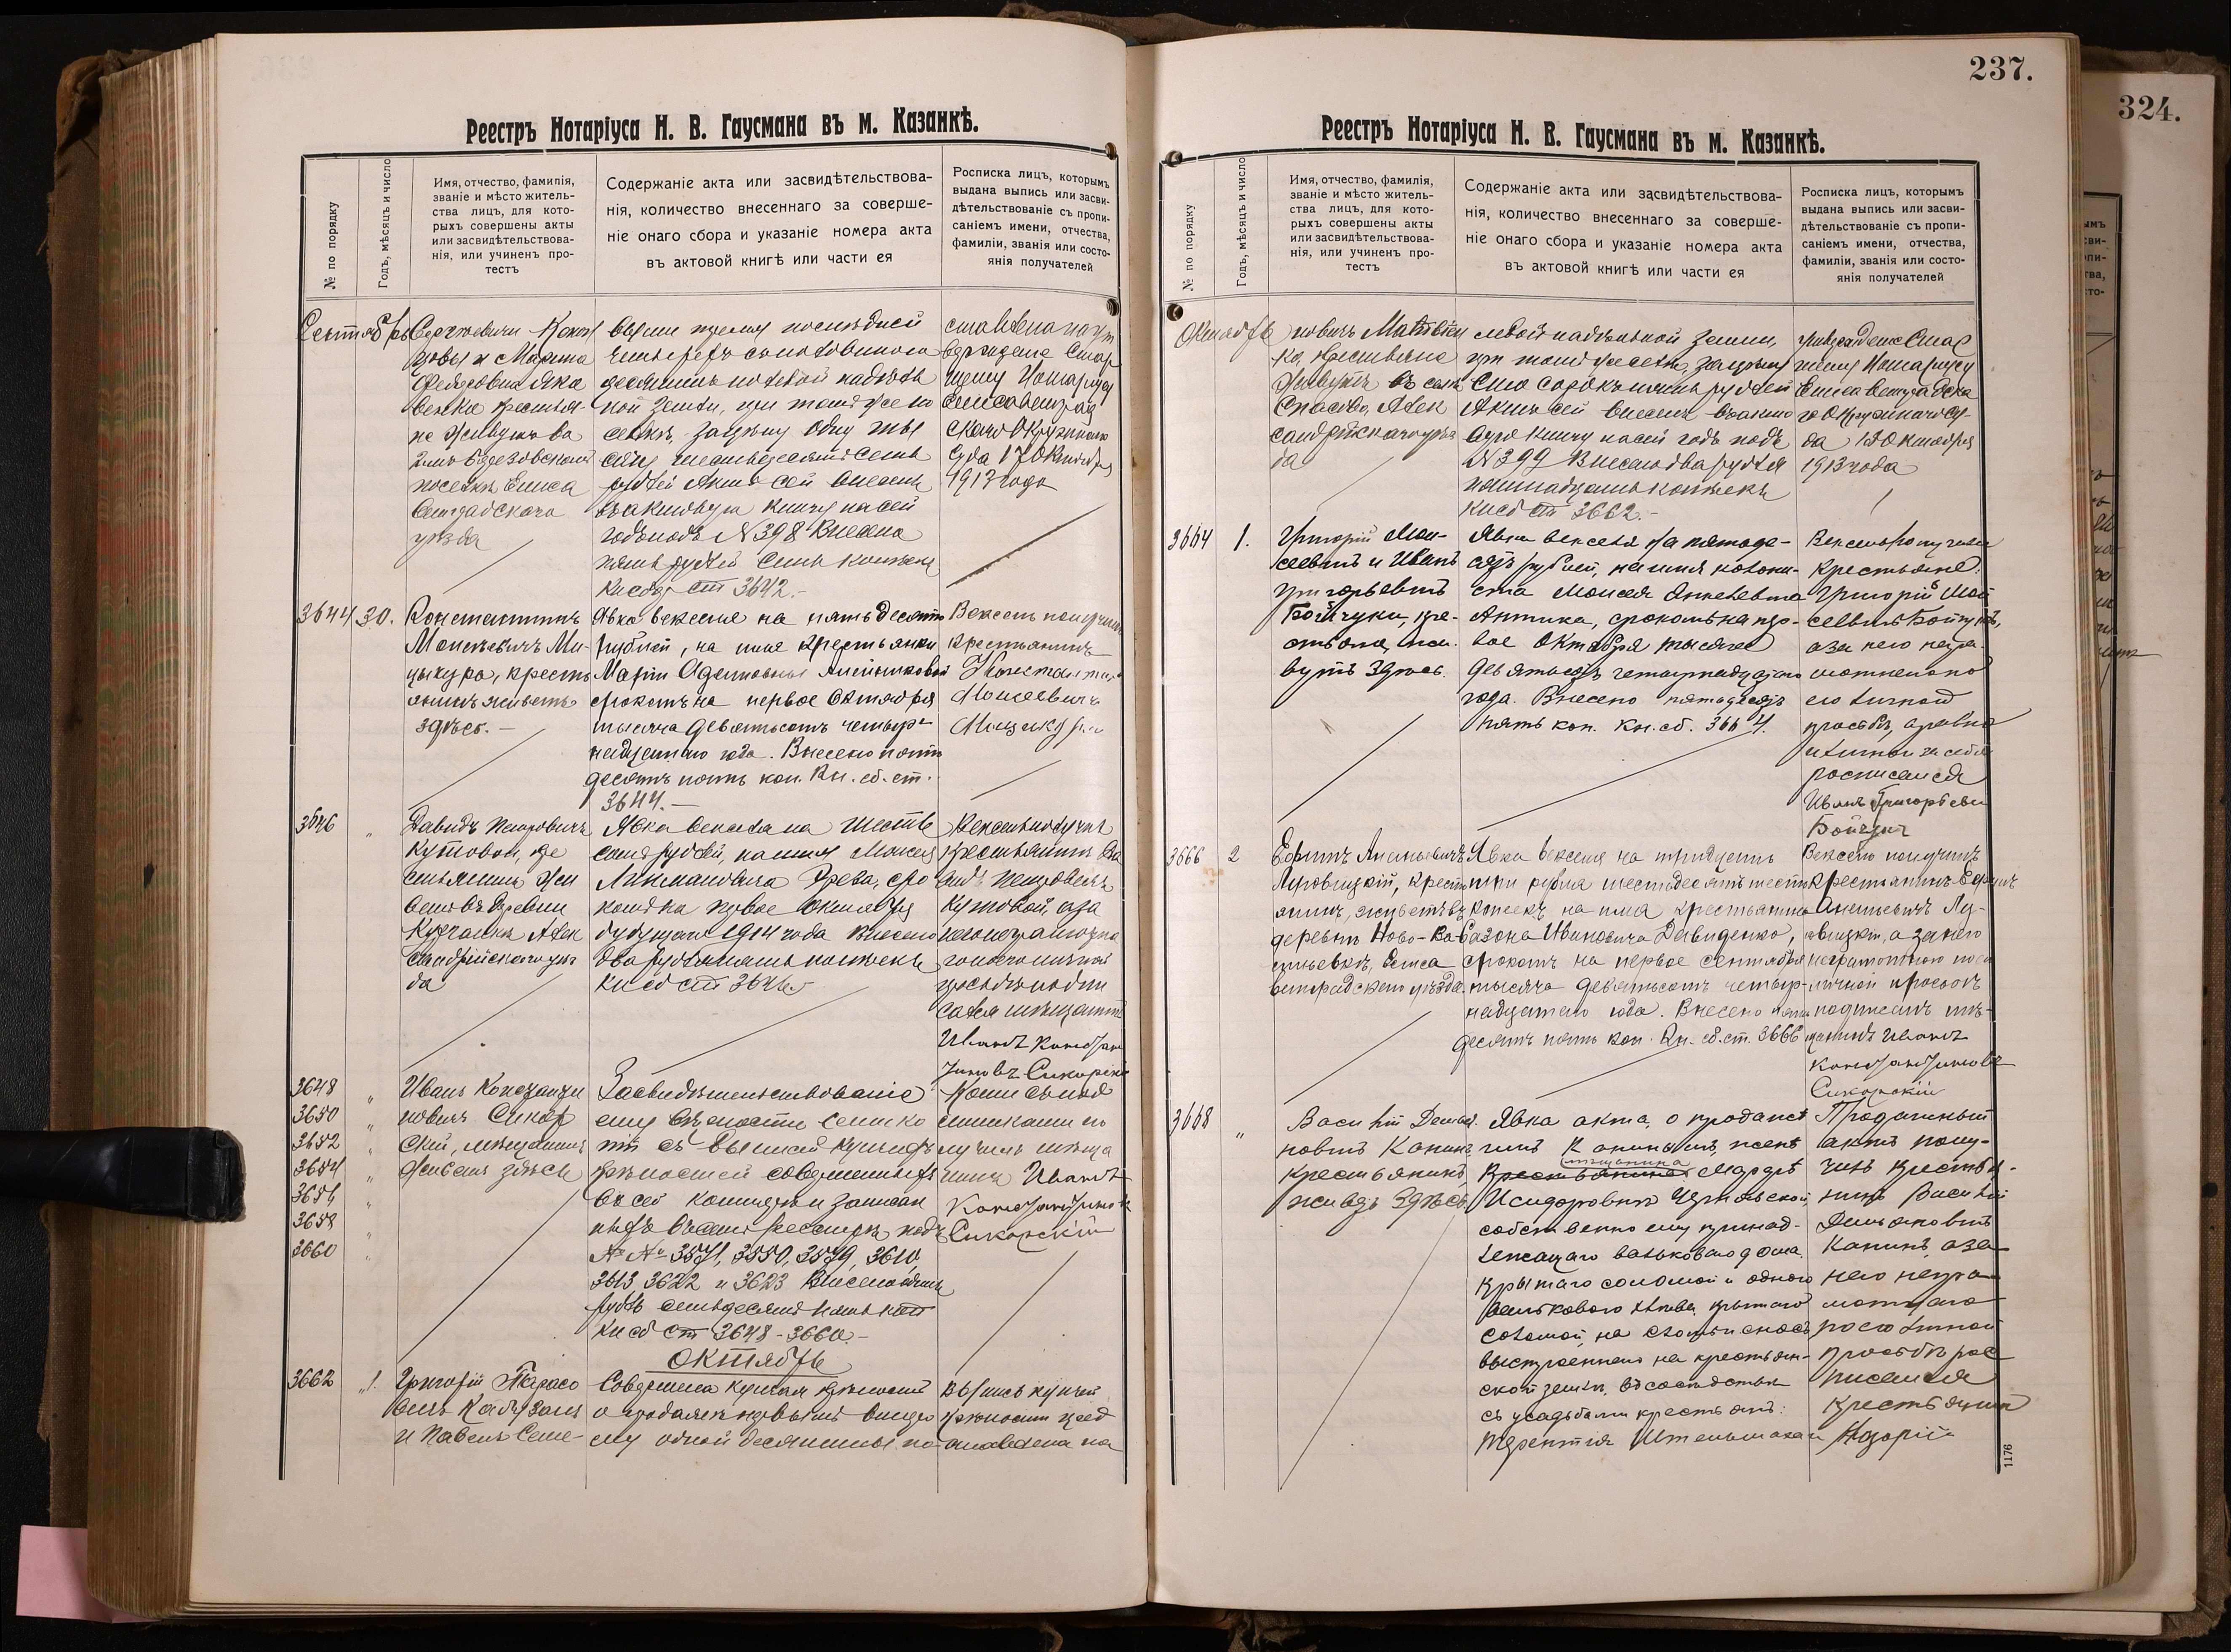 237.
324.
Реестръ Нотаріуса Н. В. Гаусмана въ м. Казанкѣ.
№ по порядку
Годъ, мѣсяцъ и число
Имя, отчество, фамилія,
званіе и мѣсто житель-
ства лицъ, для кото-
рыхъ совершены акты
или засвидѣтельствова-
нія, или учиненъ про-
тестъ
Содержаніе акта или засвидѣтельствова-
нія, количество внесеннаго за соверше-
ніе онаго сбора и указаніе номера акта
въ актовой книгѣ или части ея
Росписка лицъ, которымъ
выдана выпись или засви-
дѣтельствованіе съ пропи-
саніемъ имени, отчества,
фамиліи, званія или состо-
янія получателей
Сентябрь
и Марина
Федоровна
венки крестья-
не живущіе въ
посёлкѣ Елиса
ветградскаго
уѣзда
десятинъ полевой надѣль
ной земли, при томъ же по
селкѣ, за цѣну одну тыс
сячу шестьдесятъ семь
рублей Актъ сей внесенъ
въ актовую книгу на сей
годъ подъ № 398 Внесено
пять рублей семь копѣекъ
Кн сбор ст 3642.-
вержденіе Стар
шему Нотаріусу
Елисаветград
скаго Окружнаго
Суда 17 Октября
1913 года
3644
30.
Константинъ
Моисѣевичъ Ми-
цыкура, кресть
янинъ живетъ
здѣсь.-
Явка векселя на пятьдесятъ
рублей, на имя крестьянки
Маріи
срокомъ на первое Октября
тысяча девятьсотъ четыр-
надцатаго года. Внесено пять
десятъ пять коп. Кн. сб. ст.
3644.-
Вексель получилъ
крестьянинъ
Константинъ
Моисеевичъ
3646
"
Давидъ Петровичъ
Кутовой, кре
стьянинъ жи
ветъ въ деревни
Алек
сандрійскаго уѣз
да
Явка векселя на шесть
сотъ рублей, на имя Моисея
сро
комъ на первое Октября
будущаго 1914 года Внесено
два рубля пять копѣекъ
Кн сб ст 3646
Вексель получилъ
крестьянинъ Да
видъ Петровичъ
Кутовой, а за
него неграмотна
го по его личной
просьбѣ подпи
сался мѣщанинъ
Иванъ Констан
тиновъ Сикорскій
3648
3650
3652
3654
3656
3658
3660
Иванъ Константи
новичъ Сикор
скій, мѣщанинъ
живетъ здѣсь
Засвидѣтельствованіе
ему вѣрности семи ко
пій съ выписей купчихъ
крѣпостей совершенныхъ
въ сей конторѣ и записан
ныхъ въ семъ реестрѣ подъ
№ № 3571, 3550, 3579, 3610,
3613, 3622 и 3623 Внесено одинъ
рубль семьдесятъ пять коп
Кн сб ст 3648-3660-
Копіи съ под
линниками по
лучилъ мѣща
нинъ Иванъ
Константиновъ
Сикорскій
Октябрь
3662
"1.
Григорій Тарасо
вичъ
и Павелъ Семе-
Совершена купчая крѣпость
о продажѣ первымъ второ
му одной десятины по
Выпись купчей
крѣпости пред
ставлена на
Реестръ Нотаріуса Н. В. Гаусмана въ м. Казанкѣ.
№ по порядку
Годъ, мѣсяцъ и число
Имя, отчество, фамилія,
званіе и мѣсто житель-
ства лицъ, для кото-
рыхъ совершены акты
или засвидѣтельствова-
нія, или учиненъ про-
тестъ
Содержаніе акта или засвидѣтельствова-
нія, количество внесеннаго за соверше-
ніе онаго сбора и указаніе номера акта
въ актовой книгѣ или части ея
Росписка лицъ, которымъ
выдана выпись или засви-
дѣтельствованіе съ пропи-
саніемъ имени, отчества,
фамиліи, званія или состо-
янія получателей
Октябрь
новичъ Матвіен
ко, крестьяне
живутъ въ селѣ
Спасово, Алек
сандрійскаго уѣз
да
левой надѣльной земли,
при томъ же селѣ, за цѣну
сто сорокъ пять рублей
Актъ сей внесенъ въ акто
вую книгу на сей годъ подъ
№ 399 Внесено два рубля
пятнадцать копѣекъ
Кн сб ст 3662.-
утвержденіе Стар
шему Нотаріусу
Елисаветградска
го Окружнаго Су-
да 17 Октября
1913 года
3664
1.
Григорій Мои-
сеевичъ и Иванъ
Григорьевичъ
Бойчуки, кре-
стьяне, жи-
вутъ здѣсь.
Явка векселя на пятьде-
сятъ рублей, на имя колони-
ста Моисея
срокомъ на пер-
вое Октября тысяча
девятьсотъ четырнадцатаго
года. Внесено пятьдесятъ
пять коп. Кн. сб. 3664.
Вексель получили
крестьяне:
Григорій Мои
сеевичъ Бойчукъ,
а за него негра-
мотнаго по
его личной
просьбѣ, а равно
и лично за себя
росписался
Иванъ Григорьеви
Бойчукъ
3666
2
Ефимъ Ананьевичъ
кресть
янинъ, живетъ въ
деревнѣ Ново-Ва
сильевкѣ, Елиса
ветградскаго уѣзда.
Явка векселя на тридцать
три рубля шестьдесятъ шесть
копѣекъ на имя крестьянина
Сазона Ивановича Давиденко,
срокомъ на первое сентября
тысяча девятьсотъ четыр-
надцатаго года. Внесено пять
десятъ пять коп. Кн. сб. ст. 3666
Вексель получилъ
крестьянинъ Ефимъ
Ананьевичъ Лу-
а за него
неграмотнаго по его
личной просьбѣ
подписалъ мѣ-
щанинъ Иванъ
Константиновъ
Сикорскій
3668
"
Василій Демья-
новичъ Канинъ,
крестьянинъ
живетъ здѣсь
Явка акта, о продажѣ
имъ Канинымъ, женѣ
мѣщанина
крестьянина Марфѣ
Исидоровнѣ
собственно ему принад-
лежащаго вальковаго дома,
крытаго соломой и одного
валькового хлева, крытаго
соломой, на сломъ и сносъ
выстроеннаго на крестьян-
ской землѣ, въ сосѣдствѣ
съ усадьбами крестьянъ:
Терентія
Продажный
актъ полу-
чилъ крестья-
нинъ Василій
Демьяновичъ
Канинъ, а за
него негра-
мотнаго
по его личной
просьбѣ рос
писался
крестьянинъ
Назарій
1176